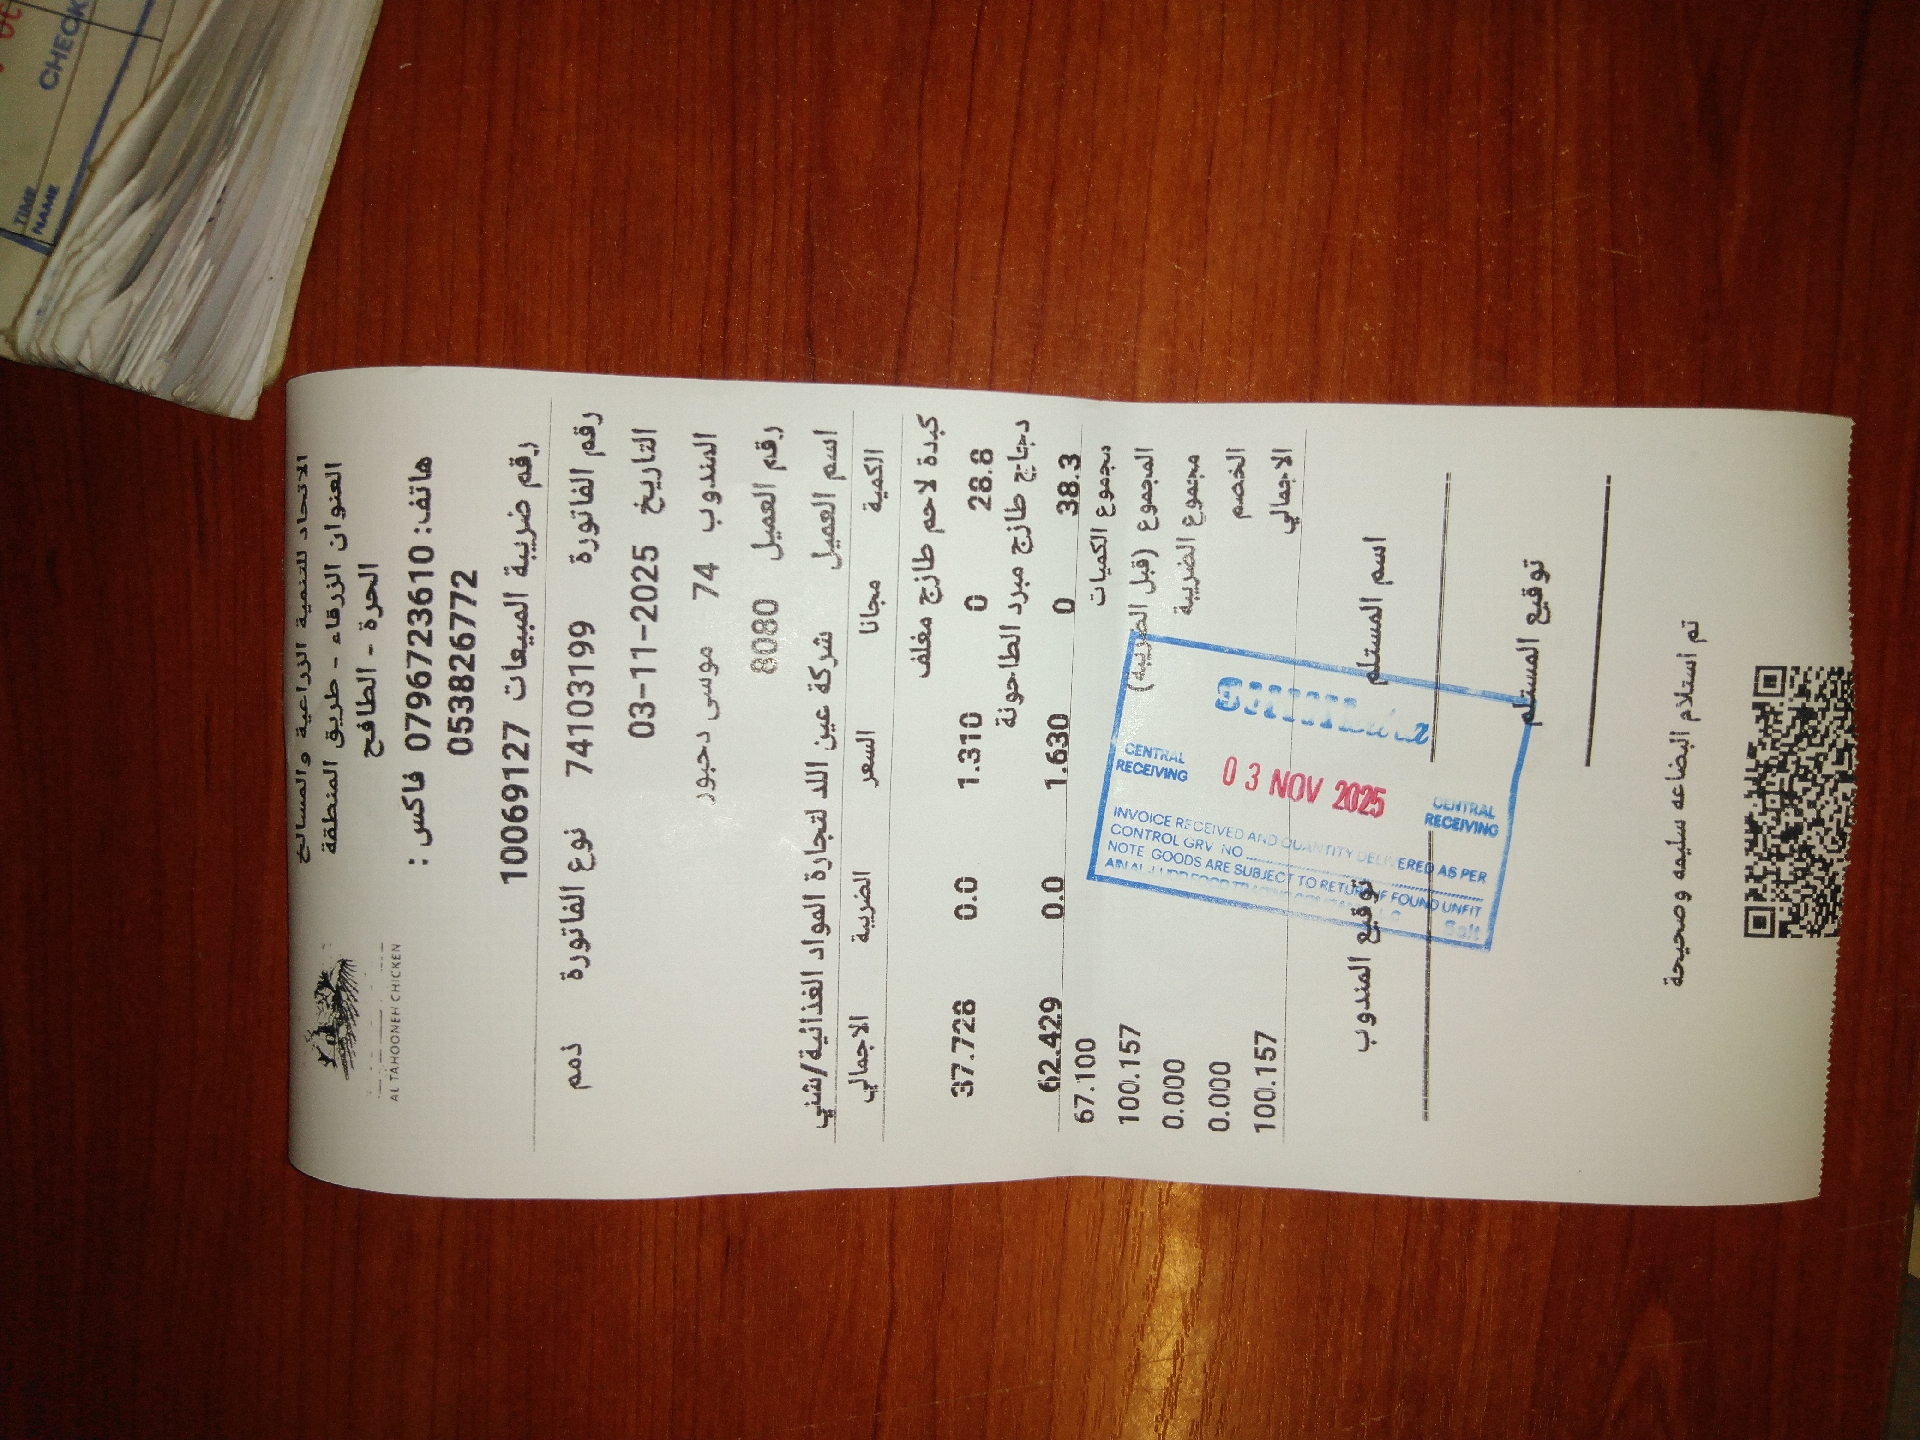 AL TAHOONEH CHICKEN
الاتحاد للتنمية الزراعية والمسالخ
العنوان الزرقاء - طريق المنطقة
الحرة - الطافح
هاتف: 0796723610 فاكس :
0538826772
رقم ضريبة المبيعات 10069127
رقم الفاتورة 74103199 نوع الفاتورة ذمم
التاريخ 03-11-2025
المندوب 74 موسى دحبور
رقم العميل 8080
اسم العميل شركة عين اللد لتجارة المواد الغذائية/شني
الكمية مجانا السعر الضريبة الاجمالي
كبدة لاحم طازج مغلف
28.8 0 1.310 0.0 37.728
دجاج طازج مبرد الطاحونة
38.3 0 1.630 0.0 62.429
مجموع الكميات 67.100
المجموع (قبل الضريبة) 100.157
مجموع الضريبة 0.000
الخصم 0.000
الاجمالي 100.157
اسم المستلم توقيع المندوب
توقيع المستلم
تم استلام البضاعه سليمه وصحيحة
CENTRAL
RECEIVING
0 3 NOV 2025
CENTRAL
RECEIVING
INVOICE RECEIVED AND QUANTITY DELIVERED AS PER
CONTROL GRV NO
NOTE GOODS ARE SUBJECT TO RETURN IF FOUND UNFIT
Salt
CHECK
TIME
NAME